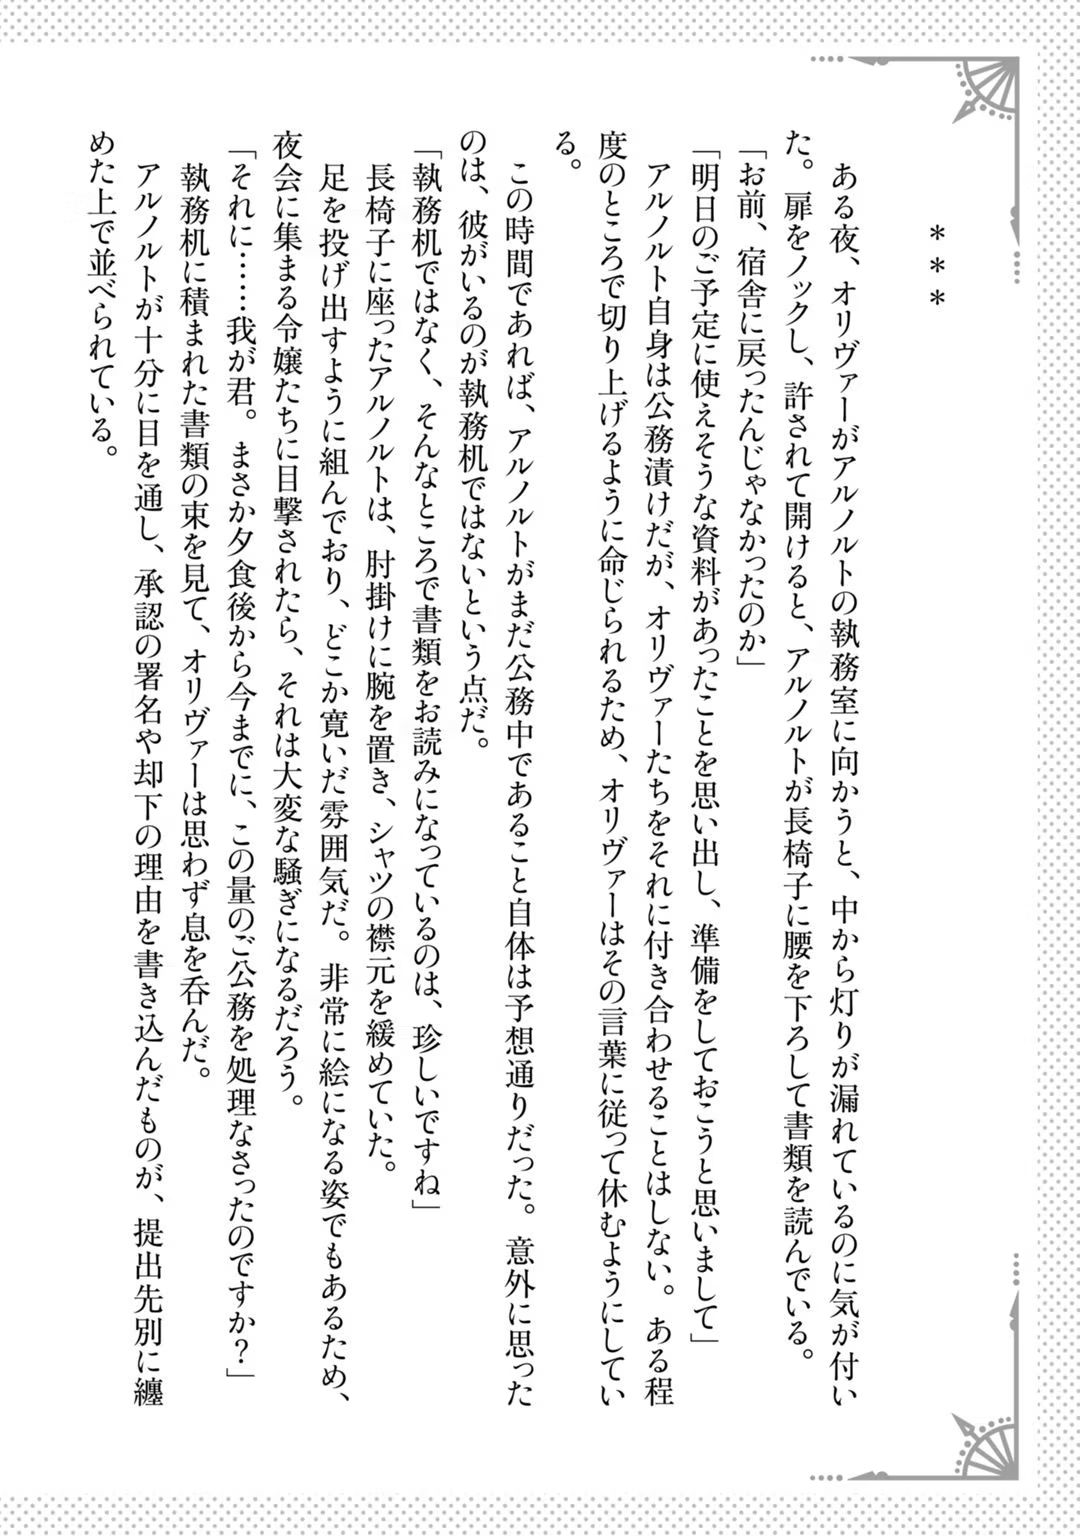 ＊＊＊
　ある夜、オリヴァーがアルノルトの執務室に向かうと、中から灯りが漏れているのに気が付い
た。扉をノックし、許されて開けると、アルノルトが長椅子に腰を下ろして書類を読んでいる。
「お前、宿舎に戻ったんじゃなかったのか」
「明日のご予定に使えそうな資料があったことを思い出し、準備をしておこうと思いまして」
　アルノルト自身は公務漬けだが、オリヴァーたちをそれに付き合わせることはしない。ある程
度のところで切り上げるように命じられるため、オリヴァーはその言葉に従って休むようにしてい
る。
　この時間であれば、アルノルトがまだ公務中であること自体は予想通りだった。意外に思った
のは、彼がいるのが執務机ではないという点だ。
「執務机ではなく、そんなところで書類をお読みになっているのは、珍しいですね」
　長椅子に座ったアルノルトは、肘掛けに腕を置き、シャツの襟元を緩めていた。
　足を投げ出すように組んでおり、どこか寛いだ雰囲気だ。非常に絵になる姿でもあるため、
夜会に集まる令嬢たちに目撃されたら、それは大変な騒ぎになるだろう。
「それに……我が君。まさか夕食後から今までに、この量のご公務を処理なさったのですか？」
　執務机に積まれた書類の束を見て、オリヴァーは思わず息を呑んだ。
　アルノルトが十分に目を通し、承認の署名や却下の理由を書き込んだものが、提出先別に纏
めた上で並べられている。